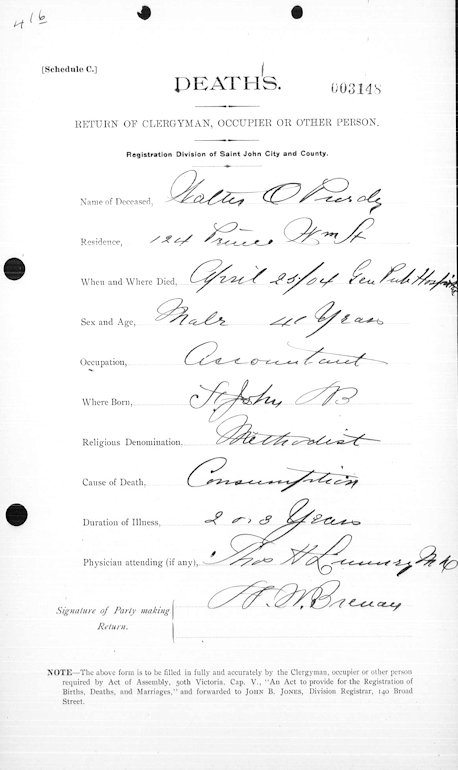 416
[Schedule C.]
DEATHS.
003148
RETURN OF CLERGYMAN, OCCUPIER OR OTHER PERSON.
Registration Division of Saint John City and County.
Name of Deceased, Walter O Purdy
Residence, 124 Prince Wm St
When and Where Died, April 23/04 Gen Pub Hospital
Sex and Age, Male 41 Years
Occupation, Accountant
Where Born, St John NB
Religious Denomination, Methodist
Cause of Death, Consumption
Duration of Illness, 2 or 3 Years
Physician attending (if any), Thos H
Signature of Party making
Return.
W. Brenan
NOTE—The above form is to be filled in fully and accurately by the Clergyman, occupier or other person
required by Act of Assembly, 50th Victoria. Cap. V., "An Act to provide for the Registration of
Births, Deaths, and Marriages," and forwarded to JOHN B. JONES, Division Registrar, 140 Broad
Street.